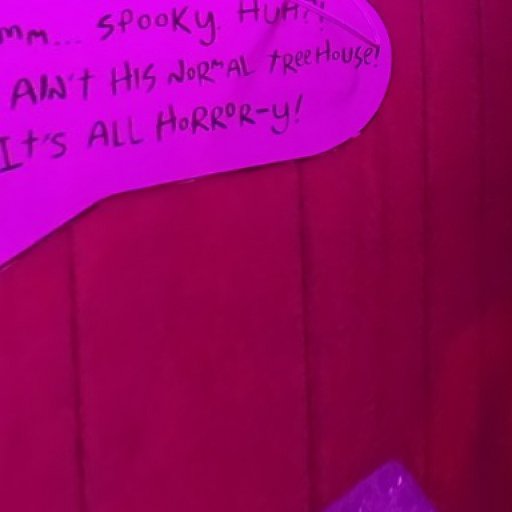 mm... SPOOKY. HUH?!
AIN't HIS NORMAL tREEHOUSE!
It'S ALL HORROR-Y!